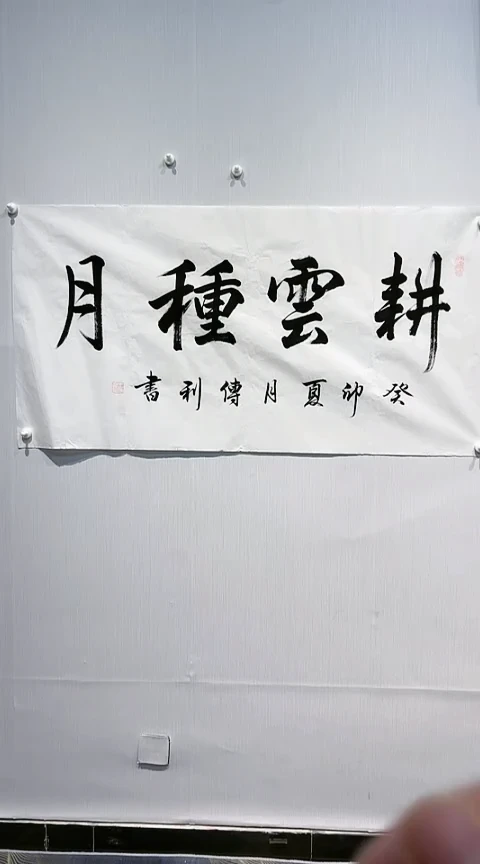 耕雲種月
癸卯夏月傳利書